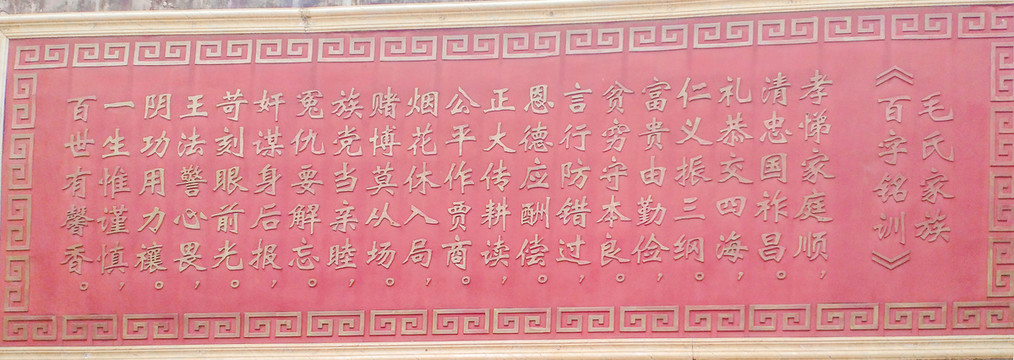 毛氏家族
《百字铭训》
孝悌家庭顺，
清忠国祚昌。
礼恭交四海，
仁义振三纲。
富贵由勤俭，
贫穷守本良。
言行防错过，
恩德应酬偿。
正大传耕读，
公平作贾商。
烟花休入局，
赌博莫从场。
族党当亲睦，
冤仇要解忘。
奸谋身后报，
苛刻眼前光。
王法警心畏，
阴功用力禳。
一生惟谨慎，
百世有馨香。